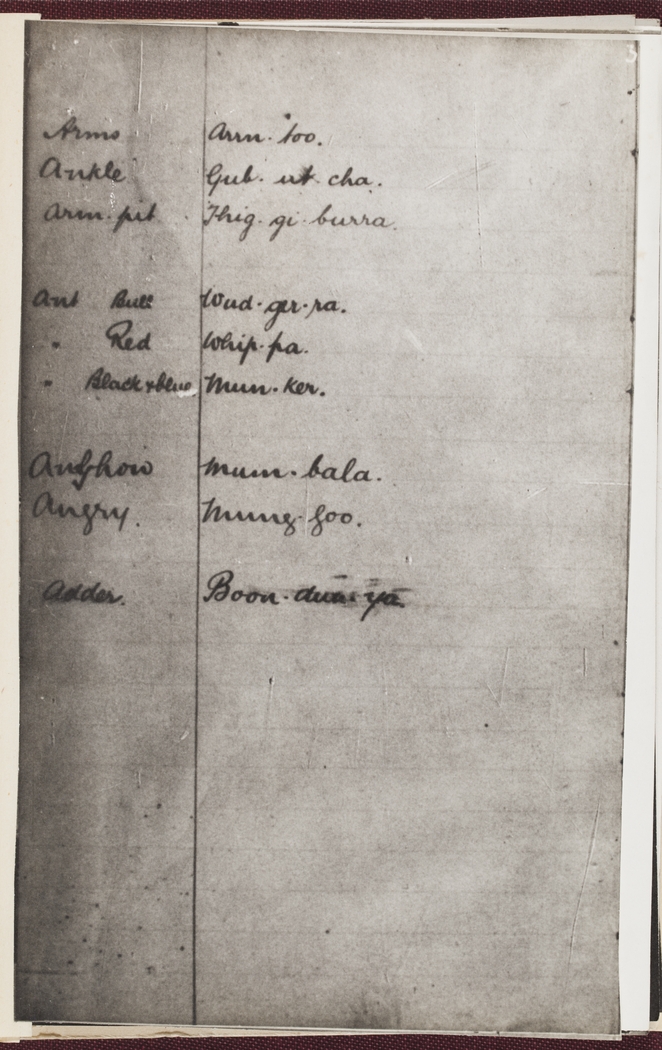 Arms Arrn. too.
Ankle Gub. ut. cha.
Arm. pit Thig. gi. burra.
Ant Bull Wud. ger. ra.
" Red Whip. pa.
" Black & blue Mun. ker.
Anyhow Mum. bala.
Angry. Mung. goo.
Adder. Boon. dun. ya.